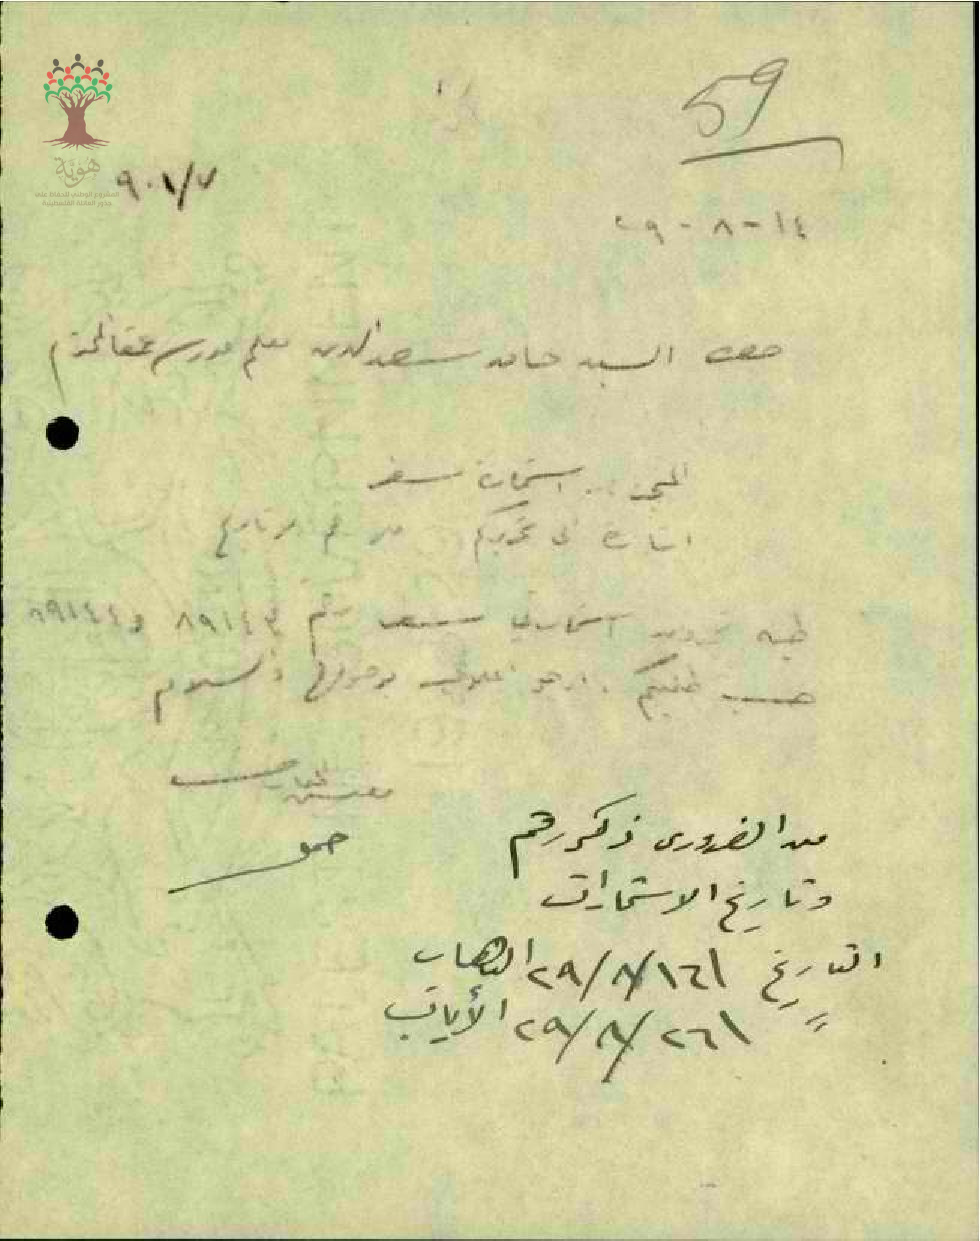 59
هوية
المشروع الوطني للحفاظ على
جذور العائلة الفلسطينية
٩٠١/٧
١٤-٨-٢٩
السيد حامد سعد الدين معلم مدرسة المحترم
استمارات سفر
اشارة الى تحريركم بتاريخ
طيه تجدون استمارتي سفر رقم ٨٩١٤٣ و ٨٩١٤٤
حسب طلبكم. ارجو اعلامي بوصولها والسلام
مفتش المعارف
من الضروري ذكر رقم
وتاريخ الاستمارات
التاريخ ٢٩/٨/١٦ الذهاب
〃 ٢٩/٨/٢٦ الأياب